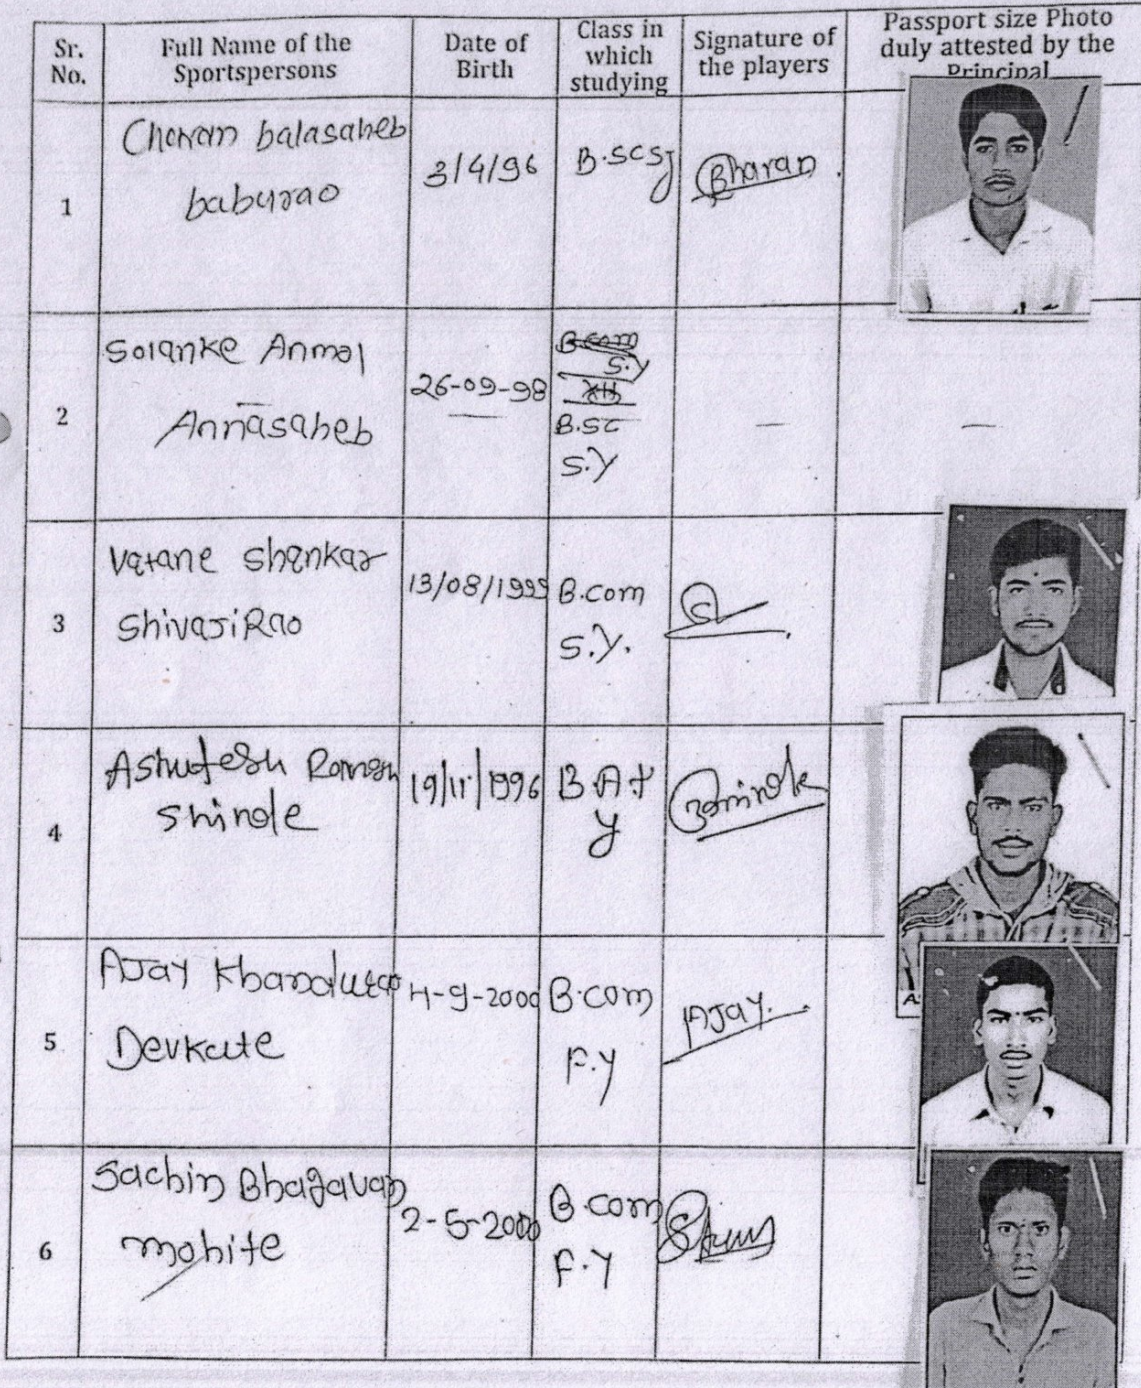 Sr. No.
Full Name of the Sportspersons
Date of Birth
Class in which studying
Signature of the players
Passport size Photo duly attested by the Principal
1
Chavan balasaheb
baburao
3/4/96
B.scsy
2
Solanke Anmol
Annasaheb
26-09-98
B.com
S.y
B.sc
S.y
—
—
3
Vatane Shankar
ShivajiRao
13/08/1999
B.com
S.y.
4
Ashutesh Romesh
Shinde
19/11/1996
B A f
y
5
AJay Khandurao
Devkate
4-9-2000
B.com
F.y
AJay.
6
Sachin Bhagavan
mohite
2-5-2000
B.com
F.y